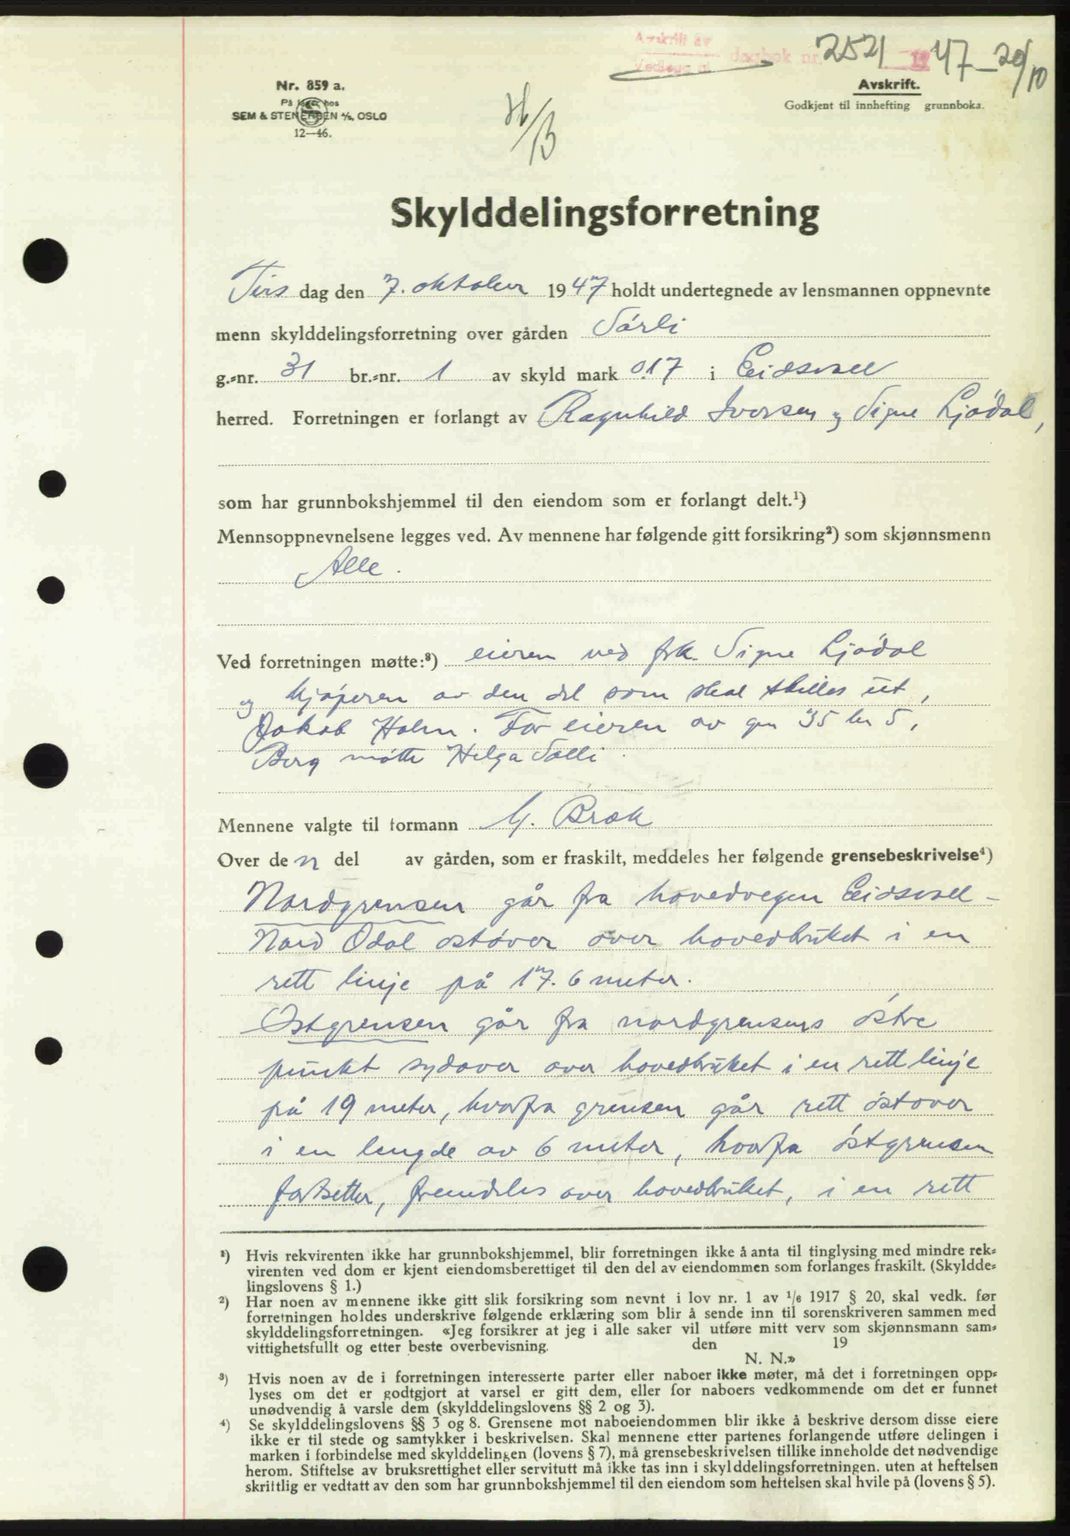 Avskrift av
Vedlegg nr. dagbok nr. 2521 1947-20/10
Nr. 859 a.
På lager hos
SEM & STENERSEN A/S, OSLO
12—46.
Avskrift.
Godkjent til innhefting i grunnboka.
Skylddelingsforretning
Tirs dag den 7. oktober 1947 holdt undertegnede av lensmannen oppnevnte
menn skylddelingsforretning over gården Sörli
g.=nr. 31 br.=nr. 1 av skyld mark 0.17 i Eidsvoll
herred. Forretningen er forlangt av Ragnhild Iversen og Signe Ljödal,
som har grunnbokshjemmel til den eiendom som er forlangt delt.¹)
Mennsoppnevnelsene legges ved. Av mennene har følgende gitt forsikring²) som skjønnsmenn
Alle.
Ved forretningen møtte:³) eieren ved frk. Signe Ljödal
og kjöperen av den del som skal skilles ut,
Jakob Holm. For eieren av gnr 35 br 5,
Berg mötte Helga Solli.
Mennene valgte til formann G. Brek
Over den del av gården, som er fraskilt, meddeles her følgende grensebeskrivelse⁴)
Nordgrensen går fra hovedvegen Eidsvoll-
Nord Odal östover over hovedbruket i en
rett linje på 17.6 meter.
Östgrensen går fra nordgrensens östre
punkt sydover over hovedbruket i en rett linje
på 19 meter, hvorfra grensen går rett östover
i en lengde av 6 meter, hvorfra östgrensen
fortsetter, fremdeles over hovedbruket, i en rett
¹) Hvis rekvirenten ikke har grunnbokshjemmel, blir forretningen ikke å anta til tinglysing med mindre rek=
virenten ved dom er kjent eiendomsberettiget til den del av eiendommen som forlanges fraskilt. (Skyldde=
lingslovens § 1.)
²) Har noen av mennene ikke gitt slik forsikring som nevnt i lov nr. 1 av 1/6 1917 § 20, skal vedk. før
forretningen holdes underskrive følgende erklæring som blir å sende inn til sorenskriveren sammen med
skylddelingsforretningen. «Jeg forsikrer at jeg i alle saker vil utføre mitt verv som skjønnsmann sam=
vittighetsfullt og etter beste overbevisning. den 19
N. N.»
³) Hvis noen av de i forretningen interesserte parter eller naboer ikke møter, må det i forretningen opp=
lyses om det er godtgjort at varsel er gitt dem, eller for naboers vedkommende om det er funnet
unødvendig å varsle dem (skylddelingslovens §§ 2 og 3).
⁴) Se skylddelingslovens §§ 3 og 8. Grensene mot naboeiendommen blir ikke å beskrive dersom disse eiere
ikke er til stede og samtykker i beskrivelsen. Skal mennene etter partenes forlangende utføre delingen i
marken i forbindelse med skylddelingen (lovens § 7), må grensebeskrivelsen tillike inneholde det nødvendige
herom. Stiftelse av bruksrettighet eller servitutt må ikke tas inn i skylddelingsforretningen. uten at heftelsen
skriftlig er vedtatt av den som har grunnbokshjemmel til den eiendom som heftelsen skal hvile på (lovens § 5).